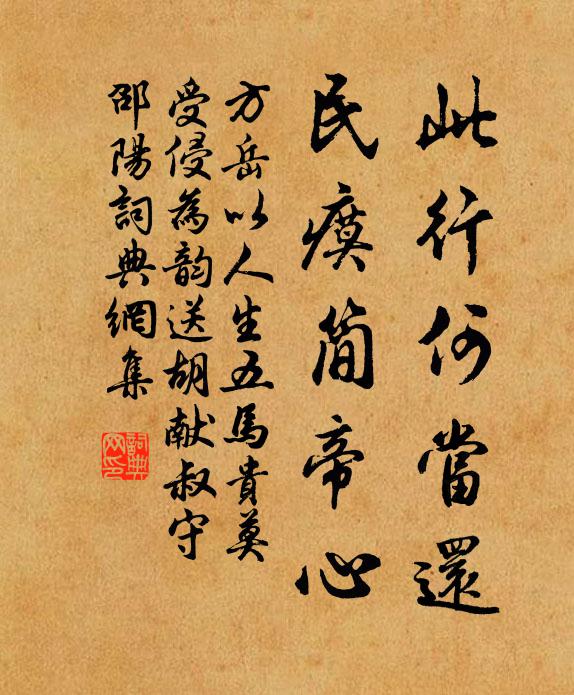 此行何當還
民瘼簡帝心
方岳以人生五馬貴莫
受侵為韵送胡献叔守
邵陽詞典網集
詞典
网印